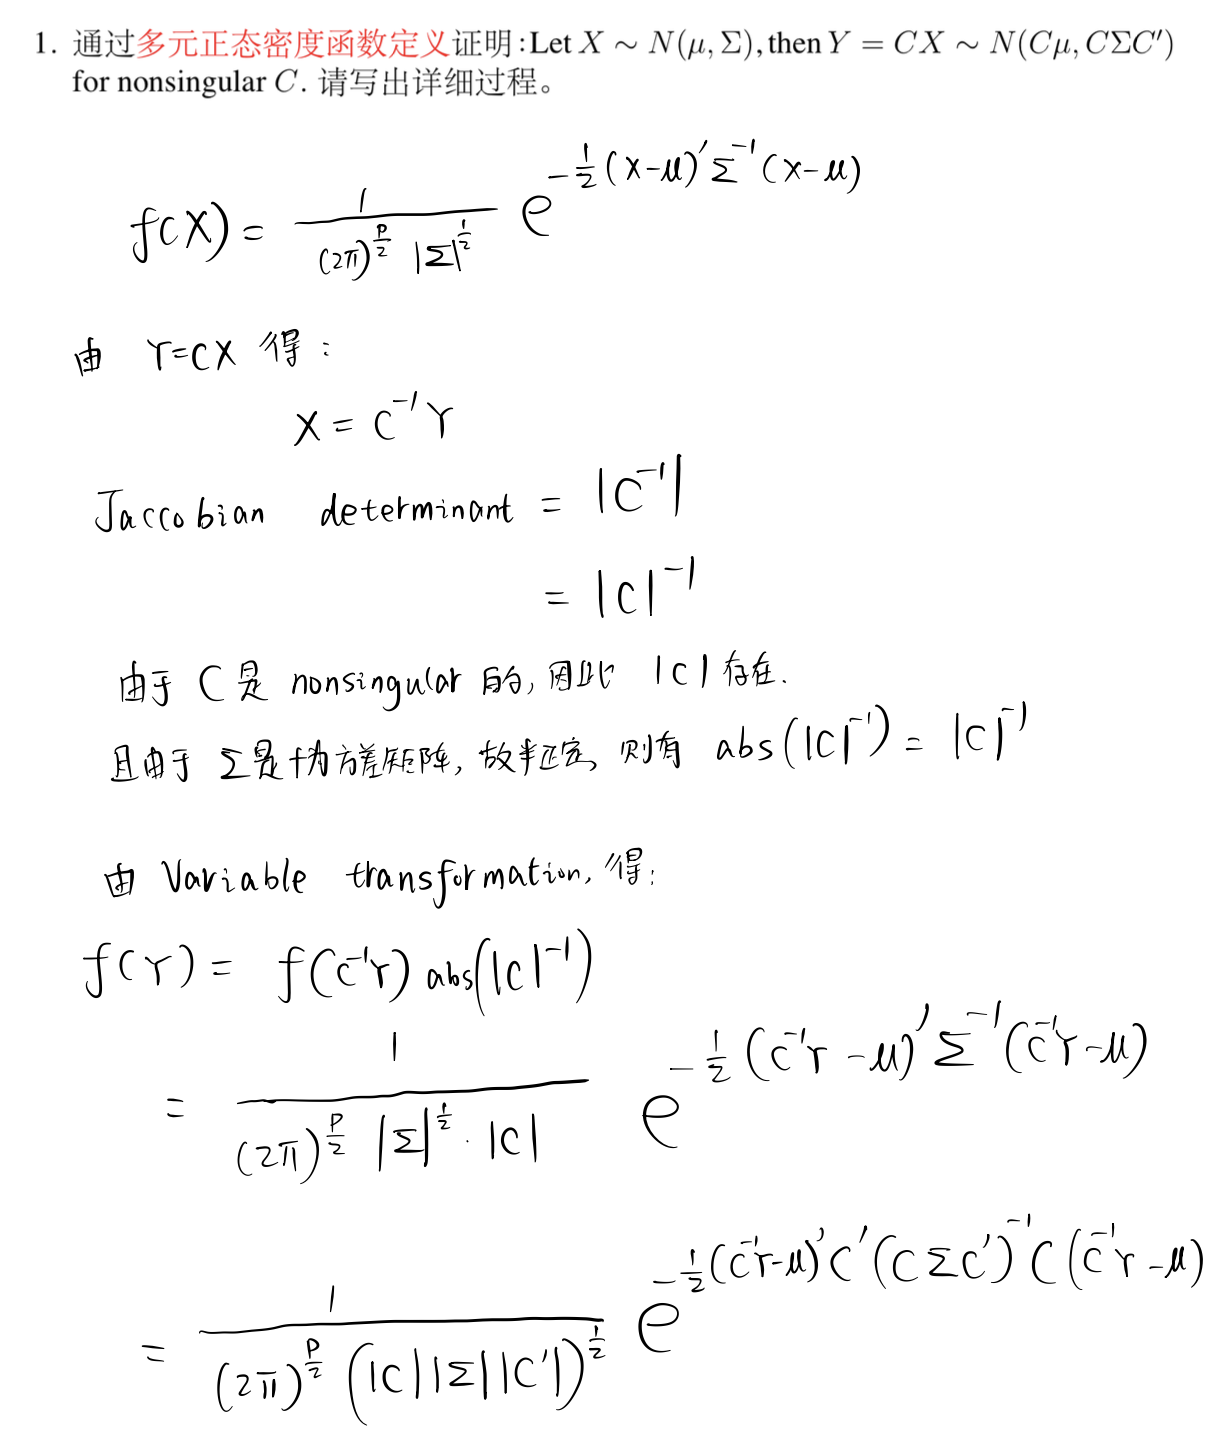 1. 通过多元正态密度函数定义证明:Let X ∼ N(μ, Σ), then Y = CX ∼ N(Cμ, CΣC′)
for nonsingular C. 请写出详细过程。
f(X) = 1 / ((2π)^{p/2} |Σ|^{1/2}) e^{-1/2 (X-μ)′ Σ^{-1} (X-μ)}
由 Y=CX 得:
X = C^{-1}Y
Jaccobian determinant = |C^{-1}|
= |C|^{-1}
由于 C 是 nonsingular 的, 因此 |C| 存在.
且由于 Σ是协方差矩阵, 故半正定, 则有 abs(|C|^{-1}) = |C|^{-1}
由 Variable transformation, 得:
f(Y) = f(C^{-1}Y) abs(|C|^{-1})
= 1 / ((2π)^{p/2} |Σ|^{1/2} · |C|) e^{-1/2 (C^{-1}Y-μ)′ Σ^{-1} (C^{-1}Y-μ)}
= 1 / ((2π)^{p/2} (|C||Σ||C′|)^{1/2}) e^{-1/2 (C^{-1}Y-μ)′C′(CΣC′)^{-1}C(C^{-1}Y-μ)}